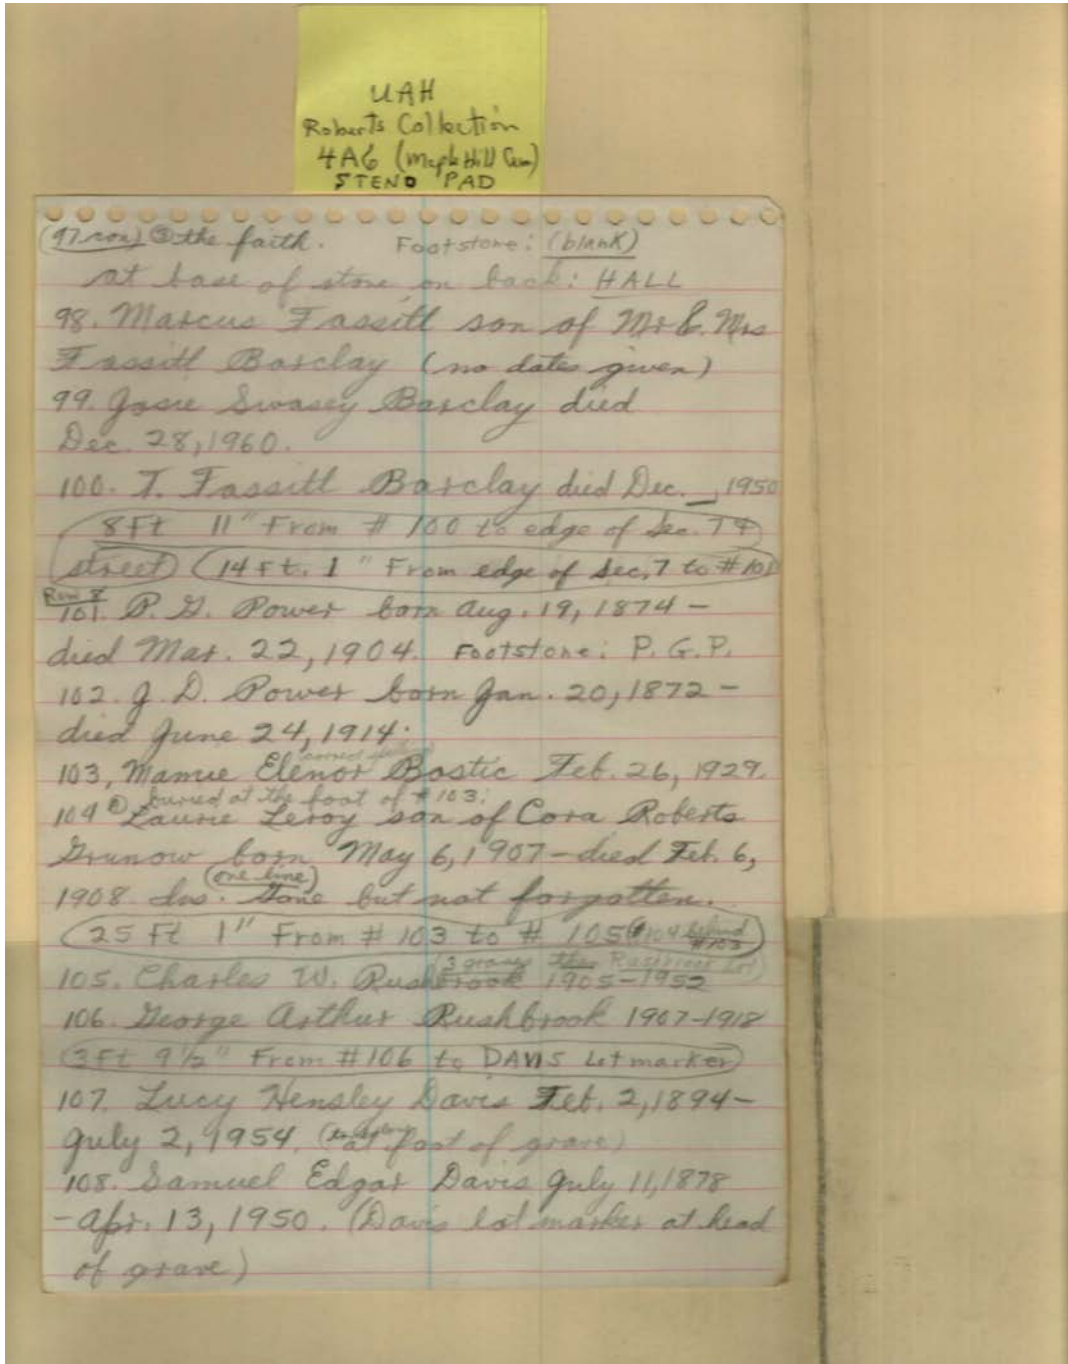 UAH
Roberts Collection
4A6 (Maple Hill Cem)
STENO PAD
(97 con) the faith. Footstone: (blank)
at base of stone on back: HALL
98. Marcus Fassitt son of Mr & Mrs
Fassitt Barclay (no dates given)
99. Josie Swasey Barclay died
Dec. 28, 1960.
100. T. Fassitt Barclay died Dec. _, 1950
8 Ft 11" From # 100 to edge of Sec. 7 &
street) (14 Ft. 1" From edge of Sec, 7 to # 101
Row 8
101. P. G. Power born Aug. 19, 1874 -
died Mar. 22, 1904. Footstone: P. G. P.
102. J. D. Power born Jan. 20, 1872 -
died June 24, 1914.
103, Mamie Elenor Bostic Feb. 26, 1929.
buried at the foot of # 103:
104 Laurie Leroy son of Cora Roberts
Grunow born May 6, 1907 - died Feb. 6,
(one line)
1908. Ins. Gone but not forgotten.
(25 Ft 1" From # 103 to # 105 (#104 behind #103)
(3 graves
105. Charles W. Rushbrook 1905-1952
106. George Arthur Rushbrook 1907-1918
(3 Ft 9 1/2" From # 106 to DAVIS Lot marker)
107. Lucy Hensley Davis Feb. 2, 1894 -
July 2, 1954. at foot of grave)
108. Samuel Edgar Davis July 11, 1878
- Apr. 13, 1950. (Davis lot marker at head
of grave)